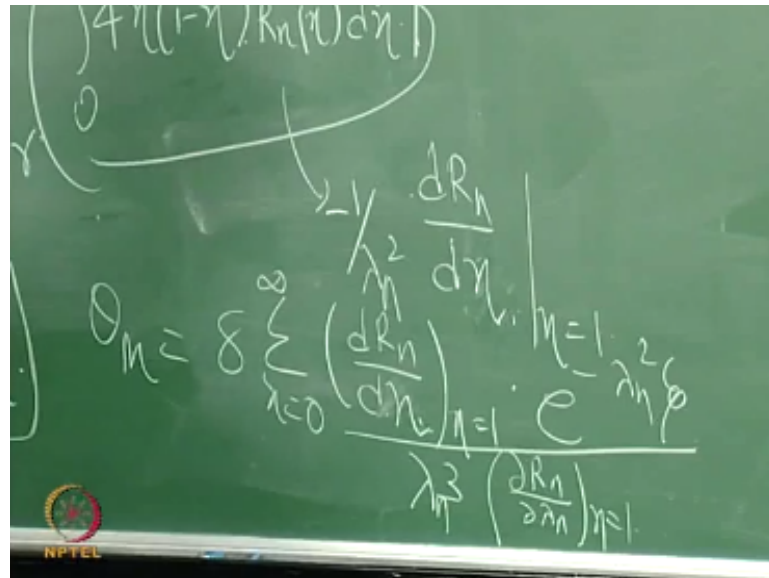 ∫ 4η(1-η) Rn(η) dη
0
-1/λn² dRn/dη |η=1
θm = 8 Σ n=0 ∞ (dRn/dη)η=1 e^-λn²ξ
λn³ (∂Rn/∂λn)η=1
NPTEL